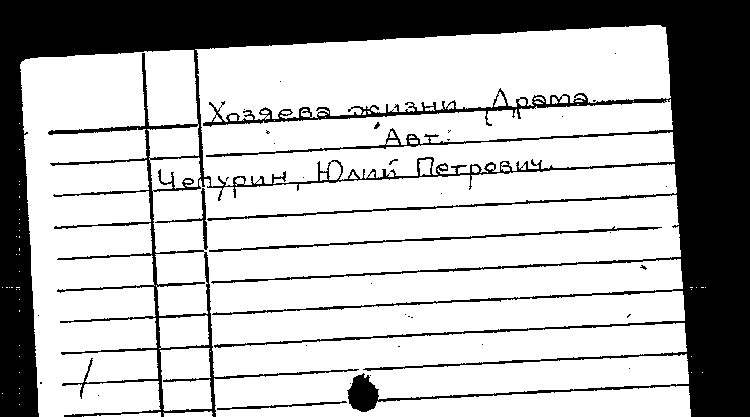 Хозяева жизни. Драма.
Авт.:
Чепурин, Юлий Петрович.